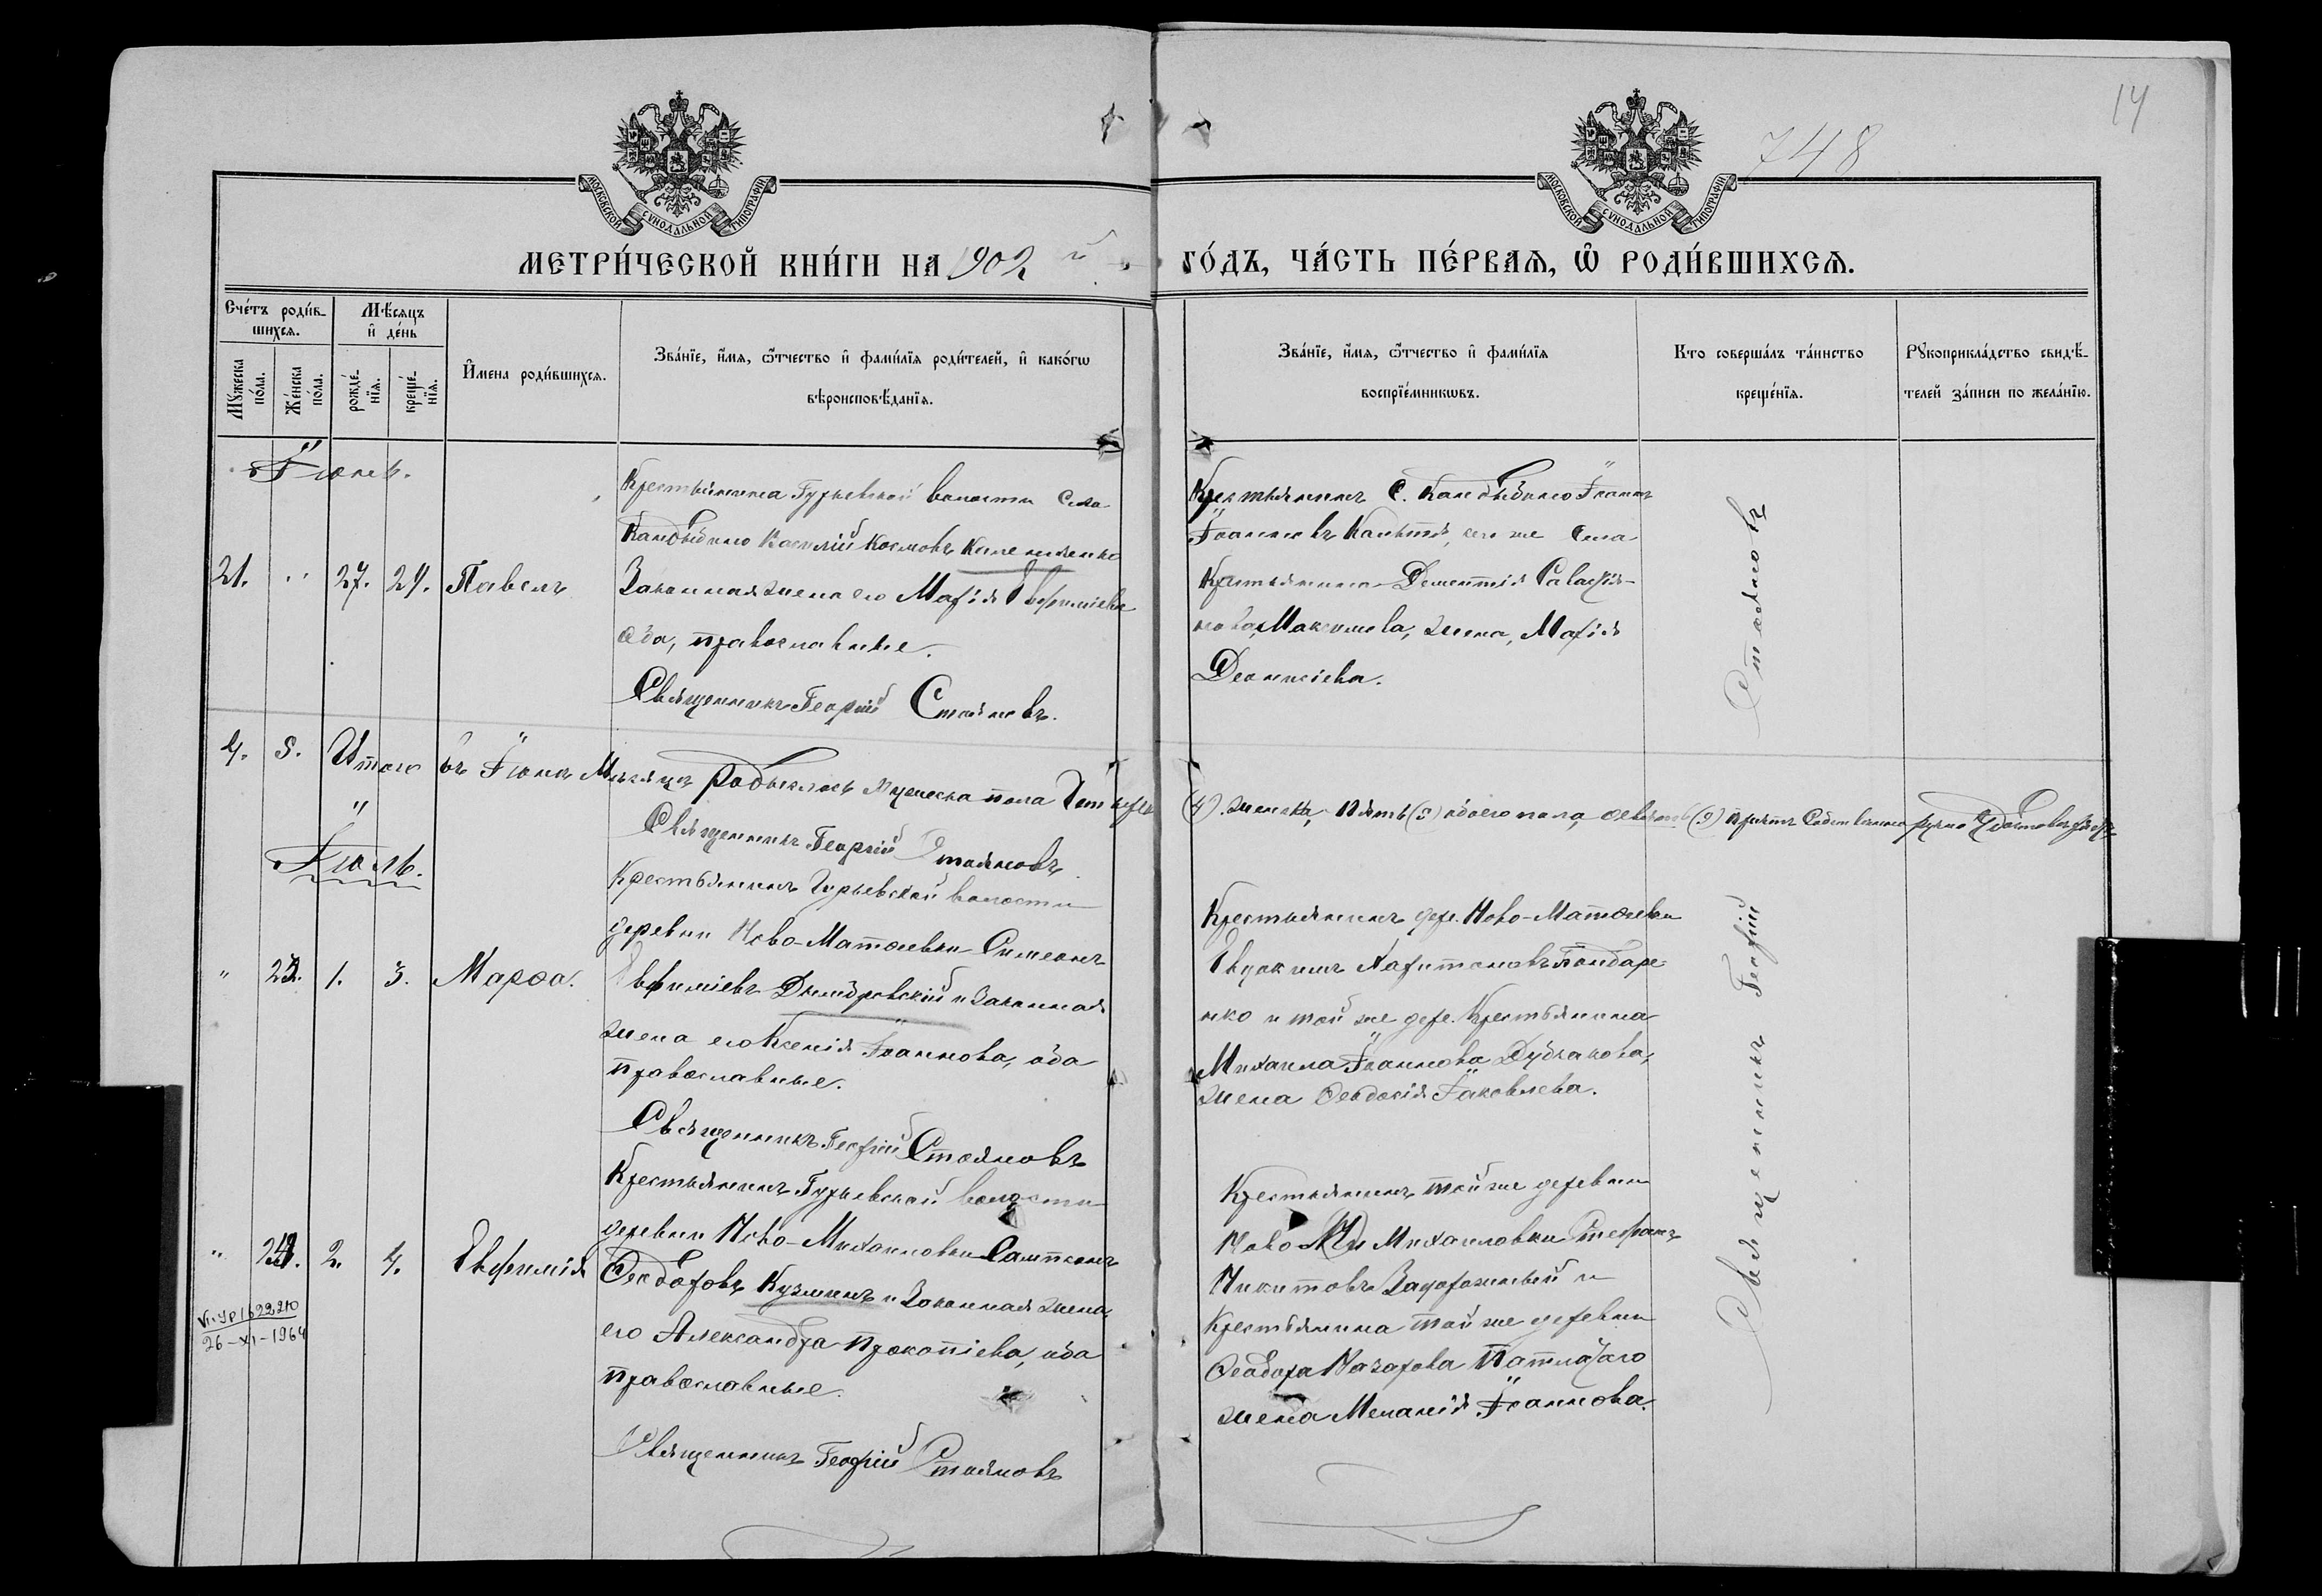 14
748
МОСКОВСКОЙ СѴНОДАЛЬНОЙ ТИПОГРАФІИ
МОСКОВСКОЙ СѴНОДАЛЬНОЙ ТИПОГРАФІИ
МЕТРИ́ЧЕСКОЙ КНИ́ГИ НА 1902 й
ГО́ДЪ, ЧА́СТЬ ПЕ́РВАѦ, Ѽ РОДИ́ВШИХСѦ.
Сче́тъ роди́в-
шихсѧ.
Мѣ́сяцъ
и҆ де́нь
Мꙋ́жеска
по́ла.
Же́нска
по́ла.
рожде́-
нїѧ.
креще́-
нїѧ.
И҆мена роди́вшихсѧ.
Зва́нїе, и҆́мѧ, ѻ҆́тчество и҆ фами́лїѧ роди́телей, и҆ како́гѡ
вѣроисповѣ́данїѧ.
Зва́нїе, и҆́мѧ, ѻ҆́тчество и҆ фами́лїѧ
воспрїе́мникѡвъ.
Кто соверша́лъ та́инство
креще́нїѧ.
Рꙋкоприкла́дство свидѣ́-
телей за́писи по жела́нїю.
Іюнь.
21. " 27. 29. Павелъ
Крестьянина Гурьевской волости села
Кандыбино Василій Космовъ
Законная жена его Марія Евфиміева
оба, православные.
Священникъ Георгій Стояновъ.
Крестьянинъ С. Кандыбино Іоаннъ
Іоанновъ сего же села
Крестьянина Дементія
Максимова, жена, Марія
Деонисіева.
4. 5. Итого въ Іюнѣ Мѣсяцѣ родилось мужеска пола Четыре
(4). женска, пять (5) обоего пола, девять (9)
Священникъ Георгій Стояновъ
Іюль.
" 22. 1. 3. Марѳа.
Крестьянинъ Гурьевской волости
деревни Ново-Матвѣевки Симеонъ
Евфиміевъ Димбровскій и Законная
жена его Ксенія Іоаннова, оба
православные.
Священникъ Георгій Стояновъ
Крестьянинъ дере. Ново-Матвѣевки
Евдокимъ Харитоновъ Бондаре-
нко и той же дере. Крестьянина
Михаила Іоаннова
жена Ѳеодосія Іаковлева.
" 2. 4. Евфимія
Крестьянинъ Гурьевской волости
деревни Ново-Михаиловки Сампсонъ
Ѳеодоровъ Кузминъ и Законная жена
его Александра Прокопіева, оба
православные.
Священникъ Георгій Стояновъ
Крестьянинъ той же деревни
Ново Михаиловки Стефанъ
Никитовъ Задорожный и
Крестьянина той же деревни
Ѳеодора Назарова
жена Меланія Іоаннова.
26-XI-1964
Священникъ Георгій Стояновъ